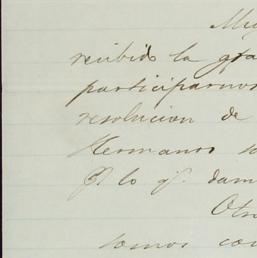 Muy
recibido la gra
participarnos
resolucion de
Hermanos so
Pr lo qe. dam
Otro
somos con